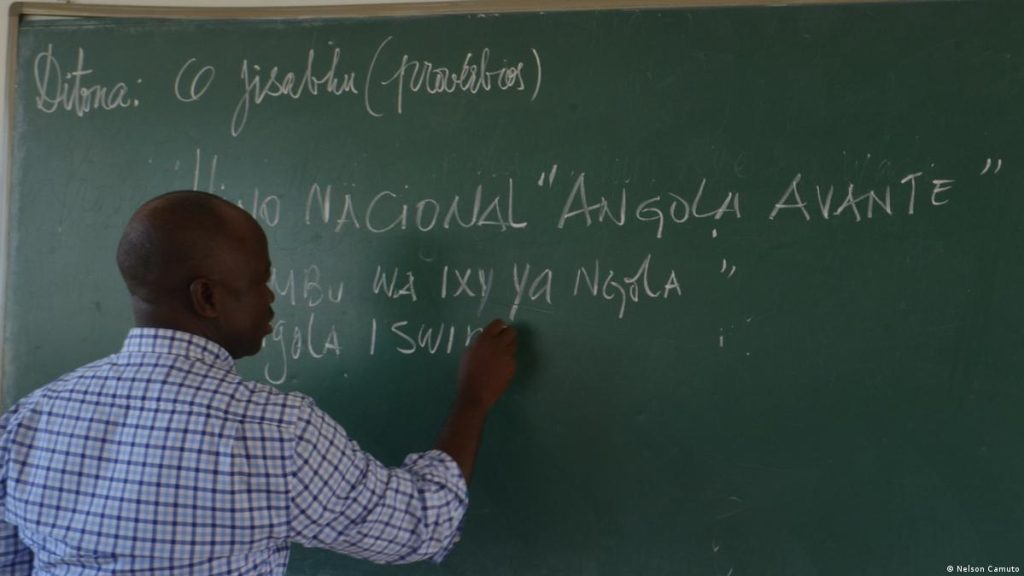 Ditona: 6 jisabhu (provérbios)
"Hino NACIONAL "ANGOLA AVANTE"
MBU WA IXY YA NgOLA"
gOLA ISWI
© Nelson Camuto